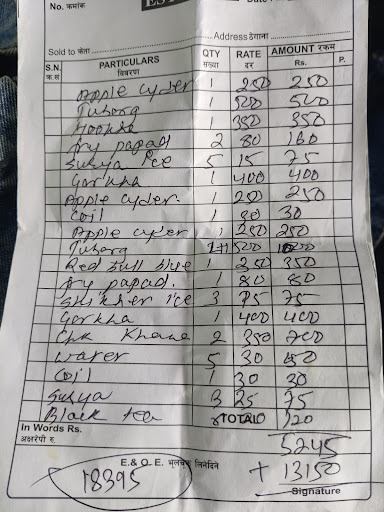 No. क्रमांक EST
Address ठेगाना
Sold to क्रेता
S.N. क्र.सं PARTICULARS विवरण QTY संख्या RATE दर AMOUNT रकम Rs. P.
Apple cyder 1 250 250
Tuborg 1 500 500
Hookha 1 350 350
Dry papad 2 80 160
Surya ice 5 15 75
Gorkha 1 400 400
Apple cyder. 1 250 250
Coil 1 30 30
Apple cyder 1 250 250
Tuborg 500
Red bull blue 1 350 350
Dry papad. 1 80 80
Shikher ice 3 25 75
Gorkha 1 400 400
Khane 2 350 700
Water 5 30
Coil 1 30 30
Surya 3 25 75
Black tea TOTAL 120
In Words Rs. 5245
अक्षरेपी रु. + 13150
E.& O.E. भुलचुक लिनेदिने
18395 Signature